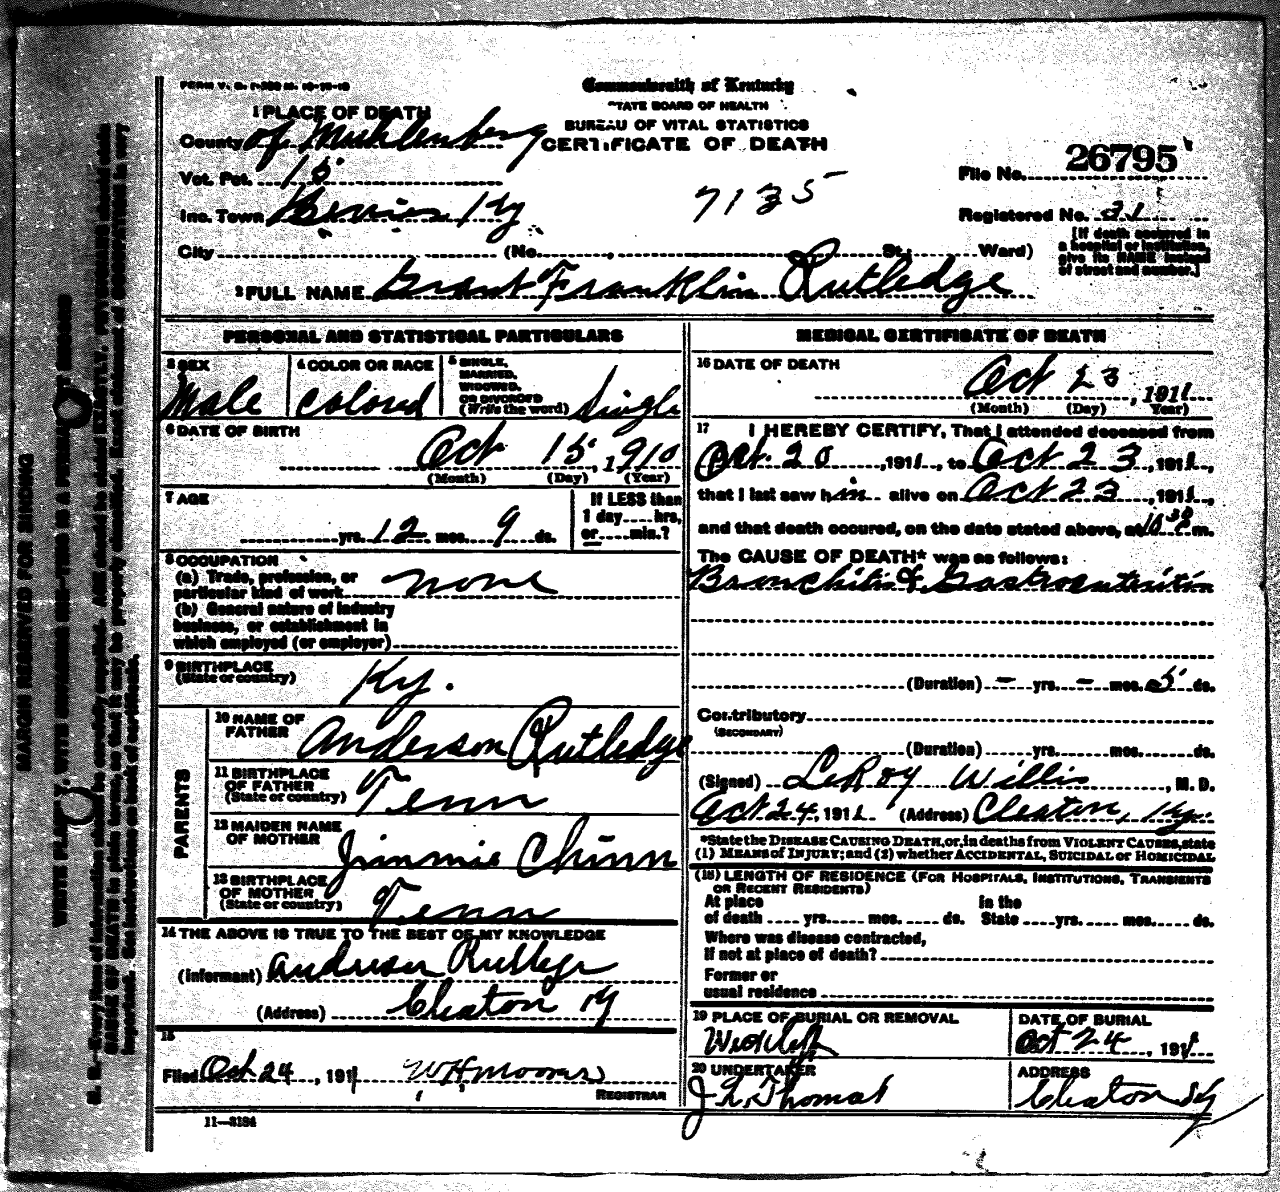 FORM V. S. 1-
Commonwealth of Kentucky
STATE BOARD OF HEALTH
BUREAU OF VITAL STATISTICS
CERTIFICATE OF DEATH
1 PLACE OF DEATH
County of Muhlenberg
Vot. Pct. 15
Inc. Town Bevier Ky
City (No. St., Ward)
7135
File No. 26795
Registered No. 31
[If death occurred in
a hospital or institution,
give its NAME instead
of street and number.]
2 FULL NAME Grant Franklin Rutledge
PERSONAL AND STATISTICAL PARTICULARS
3 SEX
Male
4 COLOR OR RACE
Colored
5 SINGLE,
MARRIED,
WIDOWED,
OR DIVORCED
(Write the word) Single
6 DATE OF BIRTH
Oct 15, 1910
(Month) (Day) (Year)
7 AGE
yrs. 12 mos. 9 ds.
If LESS than
1 day hrs.
or min.?
8 OCCUPATION
(a) Trade, profession, or
particular kind of work none
(b) General nature of industry
business, or establishment in
which employed (or employer)
9 BIRTHPLACE
(State or country) Ky.
PARENTS
10 NAME OF
FATHER Anderson Rutledge
11 BIRTHPLACE
OF FATHER
(State or country) Tenn
12 MAIDEN NAME
OF MOTHER Jimmie Chinn
13 BIRTHPLACE
OF MOTHER
(State or country) Tenn
14 THE ABOVE IS TRUE TO THE BEST OF MY KNOWLEDGE
(Informant)
(Address) Cleaton Ky
15
Filed Oct 24, 1911 W H Moores
REGISTRAR
11—3184
MEDICAL CERTIFICATE OF DEATH
16 DATE OF DEATH
Oct 23, 1911
(Month) (Day) Year)
17 I HEREBY CERTIFY, That I attended deceased from
Oct. 20, 1911, to Oct 23, 1911,
that I last saw him alive on Oct 23, 1911,
and that death occured, on the date stated above, at 10 30 P m.
The CAUSE OF DEATH* was as follows:
Bronchitis &
(Duration) - yrs. - mos. 5 ds.
Contributory
(SECONDARY)
(Duration) yrs. mos. ds.
(Signed) LeRoy Willis, M. D.
Oct 24, 1911 (Address) Cleaton, Ky.
*State the DISEASE CAUSING DEATH, or, in deaths from VIOLENT CAUSES, state
(1) MEANS of INJURY; and (2) whether ACCIDENTAL, SUICIDAL or HOMICIDAL
(18) LENGTH OF RESIDENCE (FOR HOSPITALS, INSTITUTIONS, TRANSIENTS
OR RECENT RESIDENTS)
At place In the
of death yrs. mos. ds. State yrs. mos. ds.
Where was disease contracted,
If not at place of death?
Former or
usual residence
19 PLACE OF BURIAL OR REMOVAL
DATE OF BURIAL
Oct 24, 1911
20 UNDERTAKER
J. L. Thomas
ADDRESS
Cleaton Ky
MARGIN RESERVED FOR BINDING